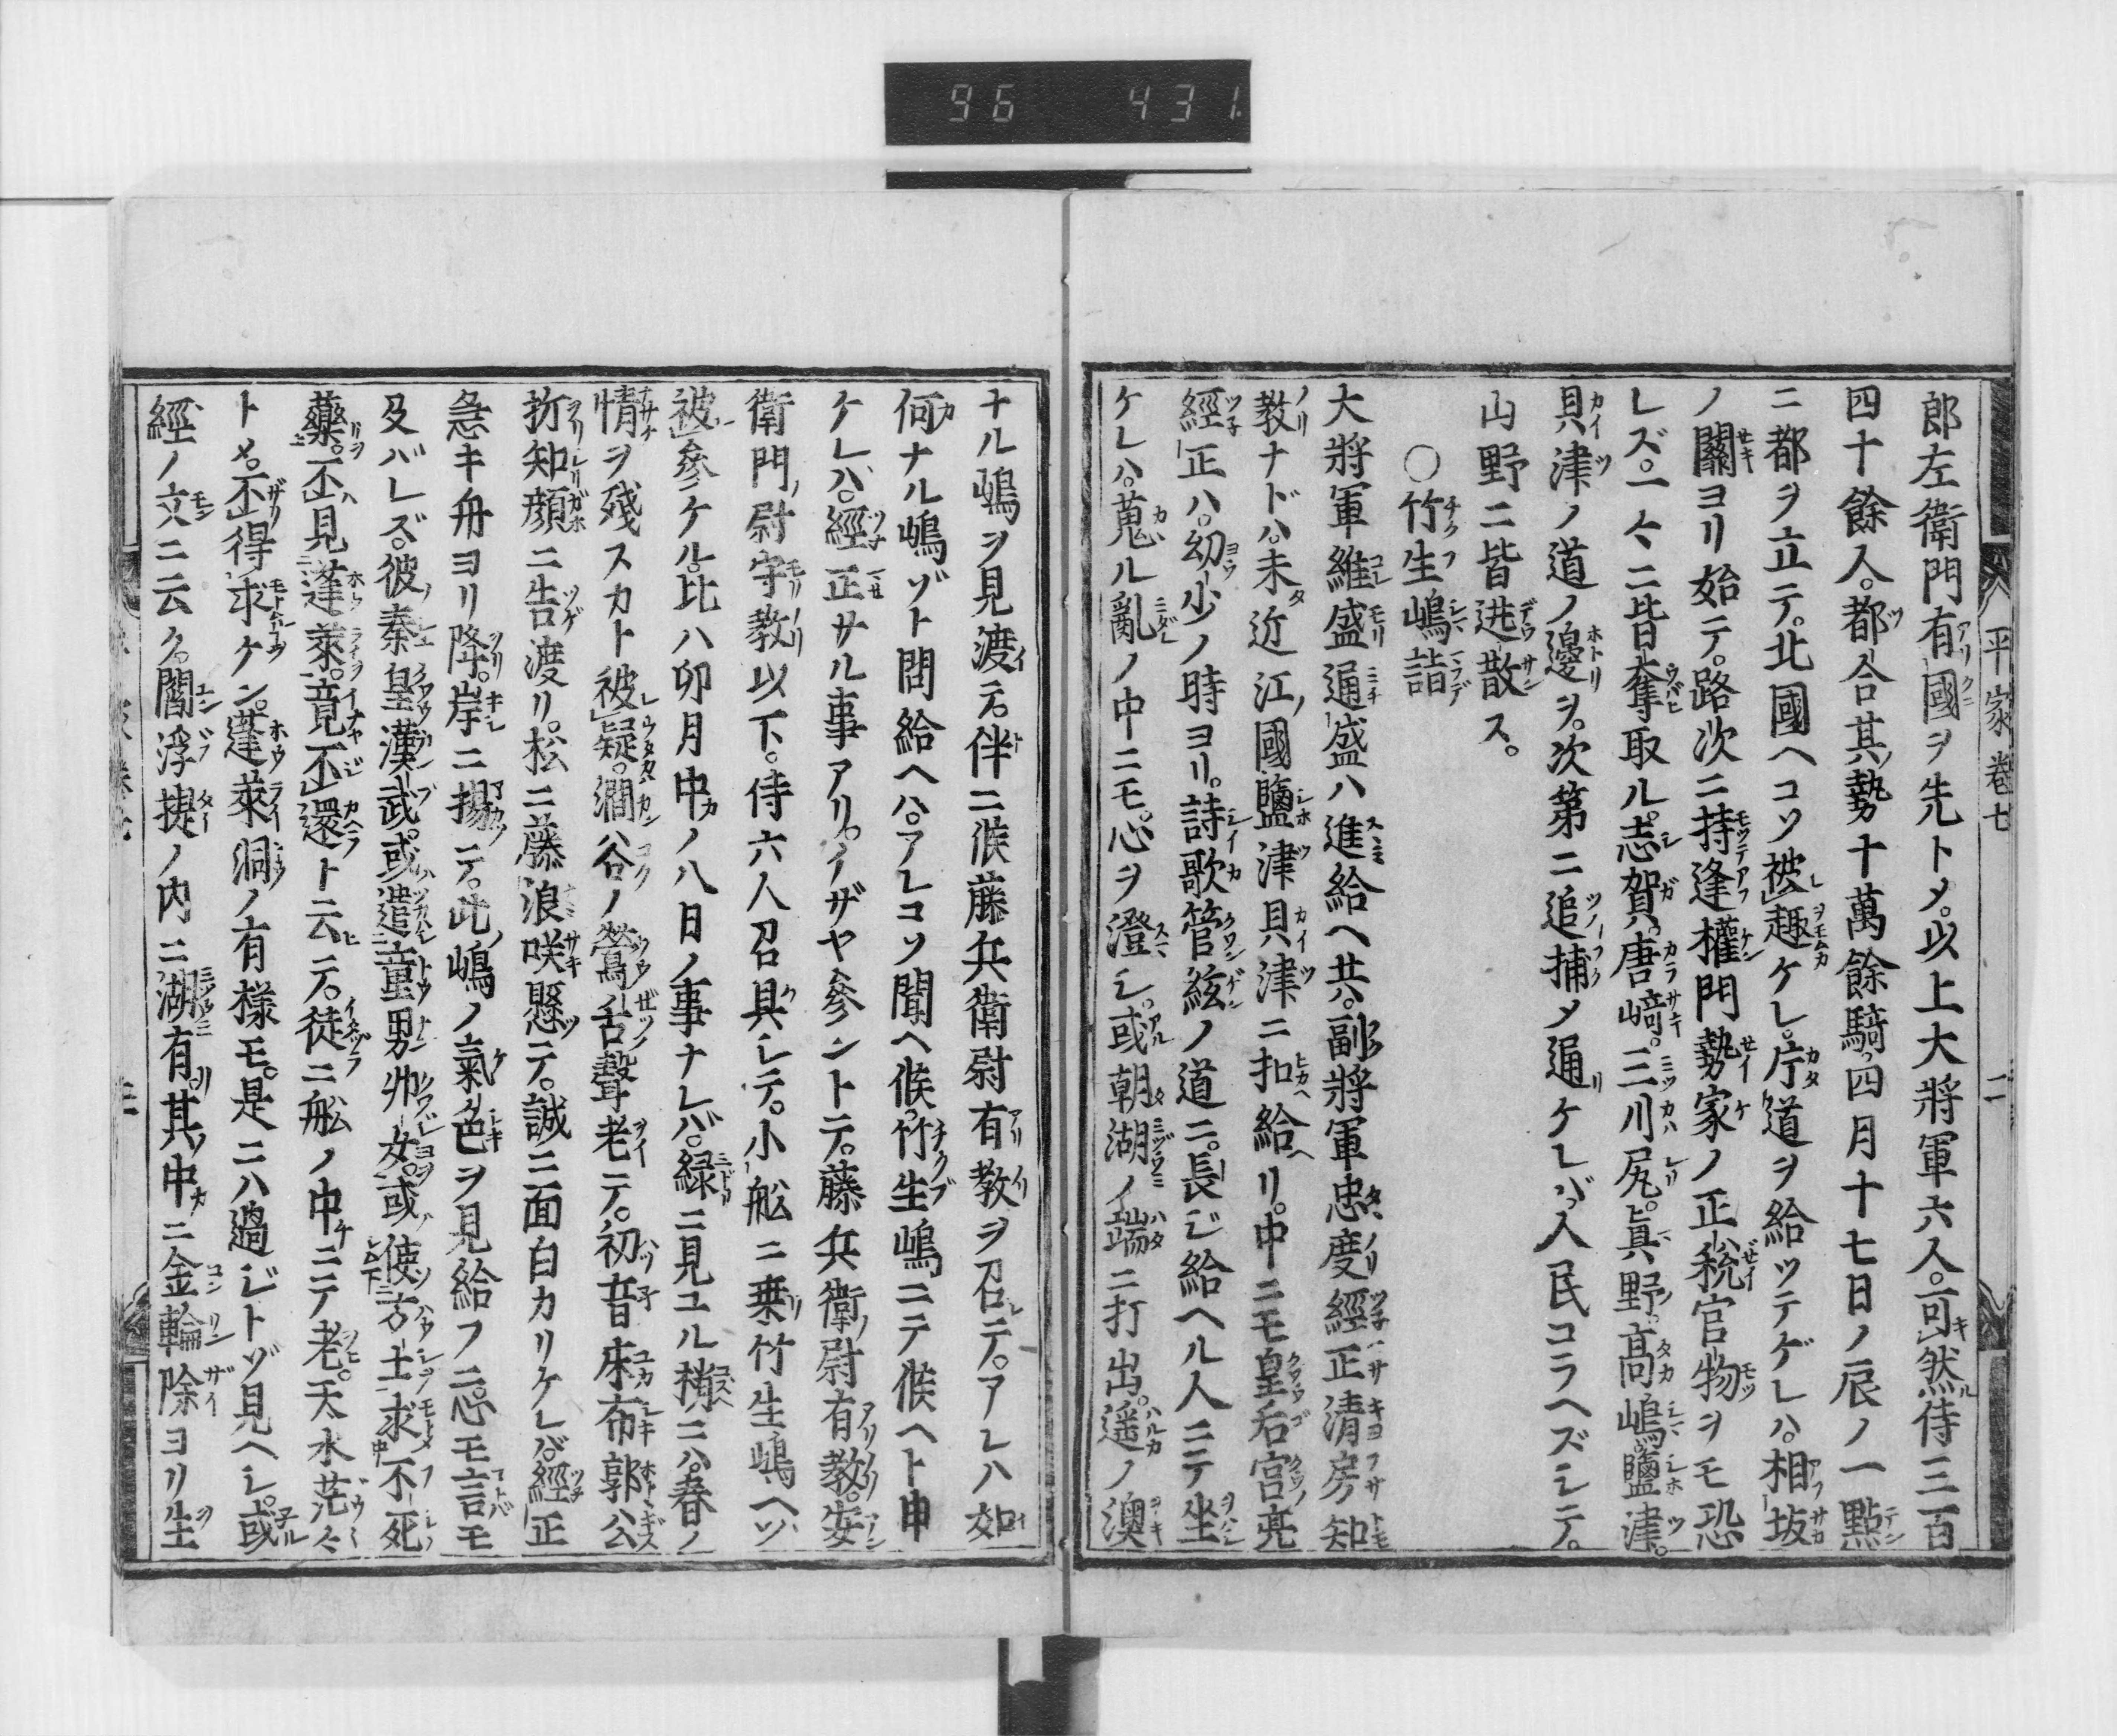 96 431
平家卷七 二
郎左衛門有國ヲ先トメ。以上大將軍六人。可然侍三百
四十餘人。都合其勢十萬餘騎。四月十七日ノ辰ノ一點
ニ都ヲ立テ。北國ヘコソ被趣ケレ。片道ヲ給ツテゲレハ。相坂
ノ關ヨリ始テ。路次ニ持逢權門勢家ノ正稅官物ヲモ恐
レズ。一々ニ皆奪取ル。志賀。唐﨑。三川尻。眞野。髙嶋。鹽津。
貝津ノ道ノ邊ヲ。次第ニ追捕メ通ケレバ。人民コラヘズシテ。
山野ニ皆迯散ス。
〇竹生嶋詣
大將軍維盛通盛ハ進給ヘ共。副將軍忠度經正清房知
教ナドハ。未近江ノ國鹽津貝津ニ扣給ヘリ。中ニモ皇后宮亮
經正ハ。幼少ノ時ヨリ。詩歌管絃ノ道ニ。長ジ給ヘル人ニテ坐
ケレハ。蒐ル亂ノ中ニモ。心ヲ澄シ。或朝湖ノ端ニ打出。遥ノ澳
ナル嶋ヲ見渡テ。伴ニ候藤兵衛尉有教ヲ召テ。アレハ如
何ナル嶋ゾト問給ヘハ。アレコソ聞ヘ候竹生嶋ニテ候ヘト申
ケレハ。經正サル事アリ。イザヤ參ントテ。藤兵衛尉有教。安
衛門尉守教以下。侍六人召具シテ。小舩ニ乗竹生嶋ヘゾ
被參ケル。比ハ卯月中ノ八日ノ事ナレバ。緑ニ見ユル梢ニハ。春ノ
情ヲ殘スカト被疑。澗谷ノ鶯舌聲老テ。初音床布郭公
折知顔ニ告渡リ。松ニ藤浪咲懸テ。誠ニ面白カリケレバ。經正
急キ舟ヨリ降。岸ニ揚テ。此嶋ノ氣色ヲ見給フニ。心モ言モ
及バレズ。彼秦皇漢武。或遣童男丱女。或使方士求不死
藥。不見蓬萊。竟不還ト云テ。徒ニ舩ノ中ニテ老。天水茫々
トメ。不得求ケン。蓬萊洞ノ有様モ。是ニハ過ジトゾ見ヘシ。或
經ノ文ニ云ク。閻浮提ノ内ニ湖有リ。其中ニ金輪除ヨリ生